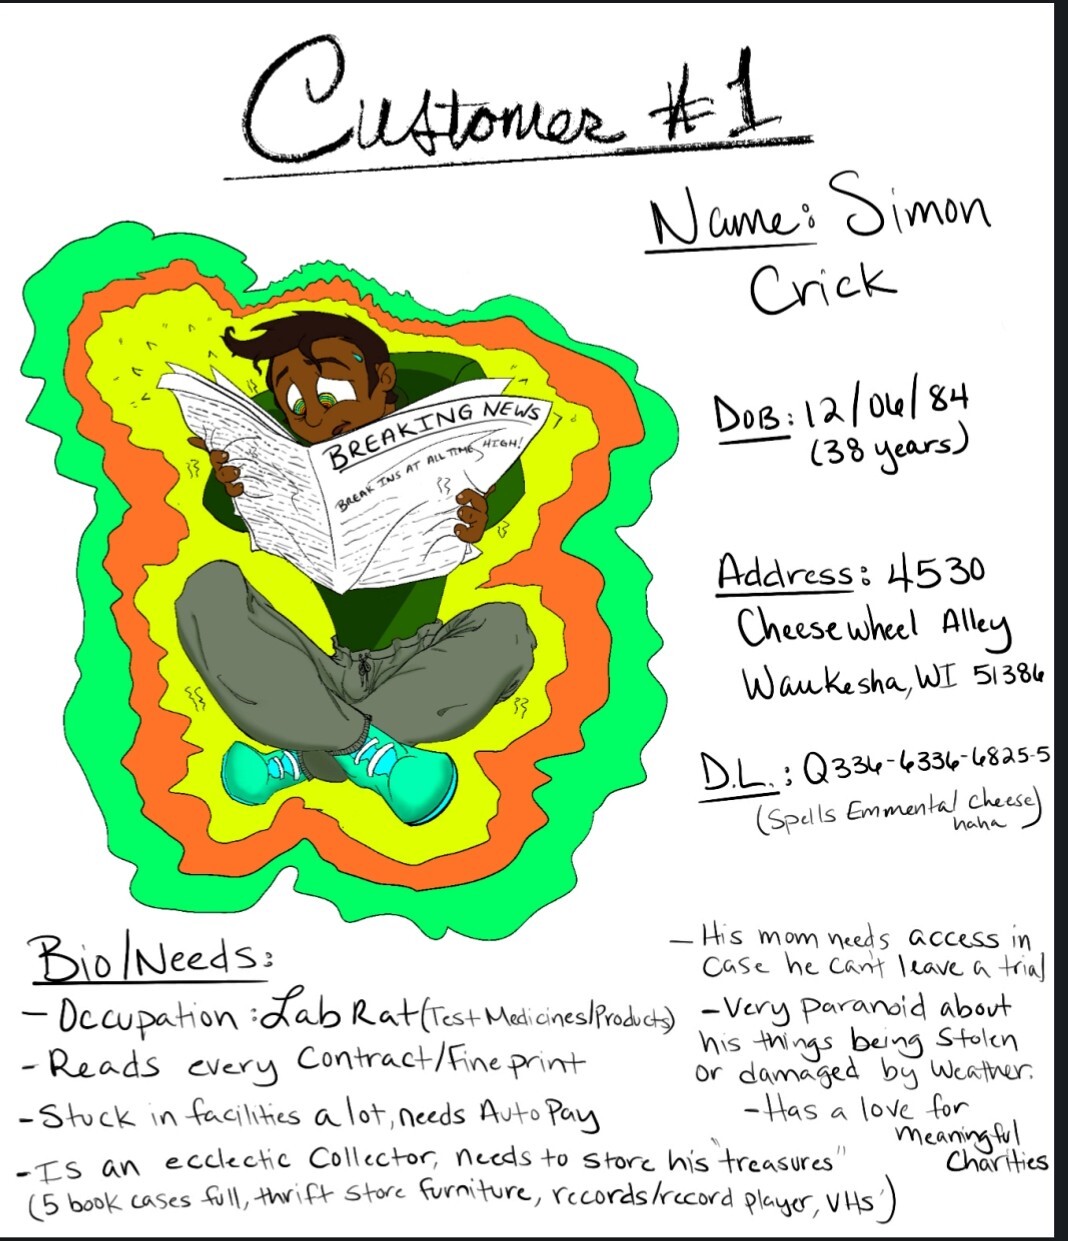 Customer #1
Name: Simon
Crick
DOB: 12/06/84
(38 years)
Address: 4530
Cheesewheel Alley
Waukesha, WI 51386
D.L.: Q336-6336-6825-5
(Spells Emmental Cheese)
haha
BREAKING NEWS
BREAK INS AT ALL TIME HIGH!
Bio/Needs:
- Occupation: Lab Rat (Test Medicines/Products)
- Reads every Contract/Fine print
- Stuck in facilities a lot, needs Auto Pay
- Is an ecclectic Collector, needs to store his "treasures"
(5 book cases full, thrift store furniture, records/record player, VHS')
- His mom needs access in
case he can't leave a trial
- Very paranoid about
his things being stolen
or damaged by weather.
- Has a love for
meaningful
Charities